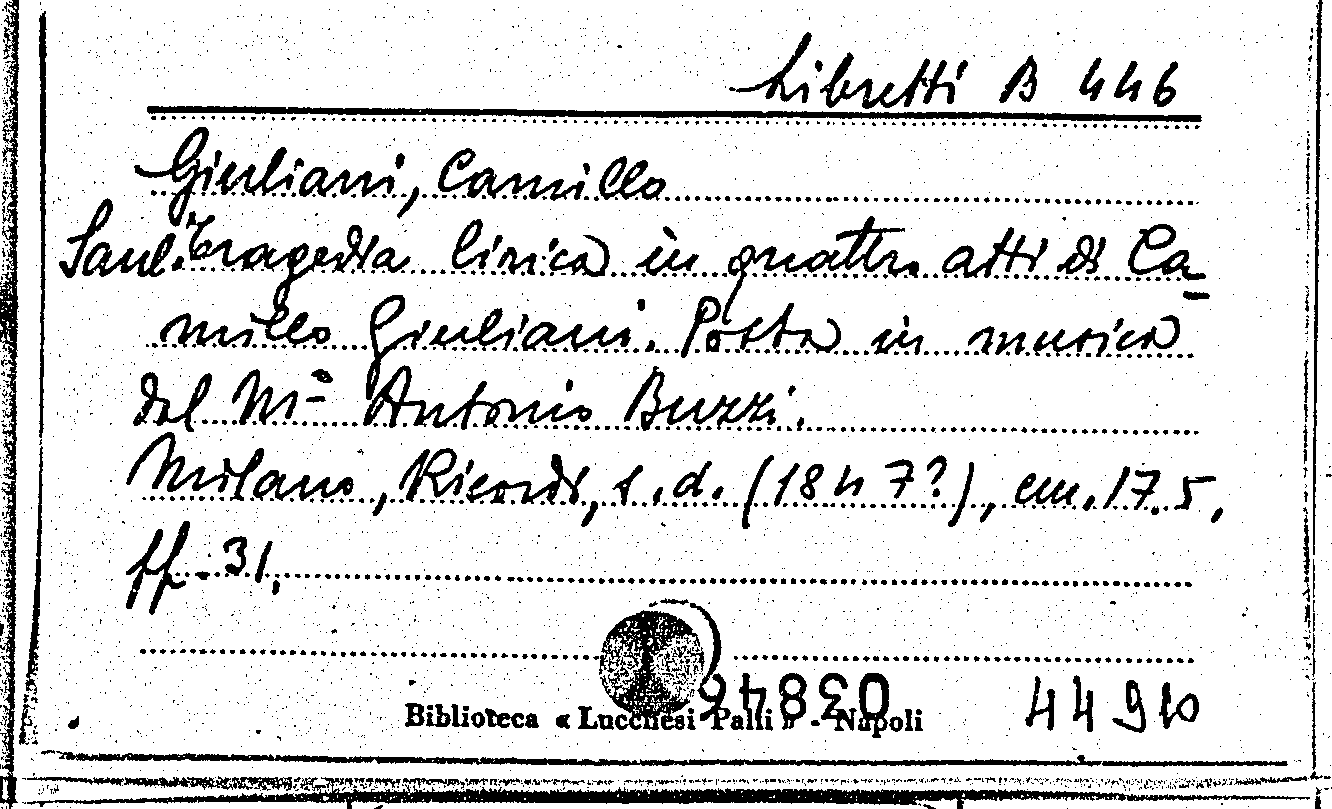 Libretti B 446
Giuliani, Camillo
Saul. Tragedia lirica in quattro atti di Ca-
millo Giuliani. Posta in musica
dal Mº Antonio Buzzi.
Milano, Ricordi, s.d. (1847?), cm. 17.5,
ff. 31.
03846
Biblioteca « Lucchesi Palli » - Napoli